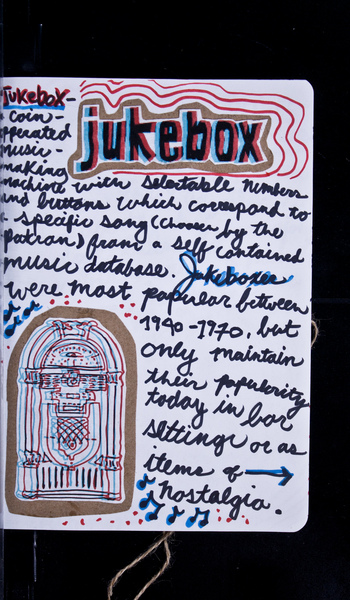 jukebox-
jukebox
coin-
opperated
music-
making
machine with selectable numbers
and buttons which correspond to
a specific song (chosen by the
patron) from a self contained
music database. Jukeboxes
were most popular between
1940-1970, but
only maintain
their popularity
today in bar
settings or as
items of
nostalgia.